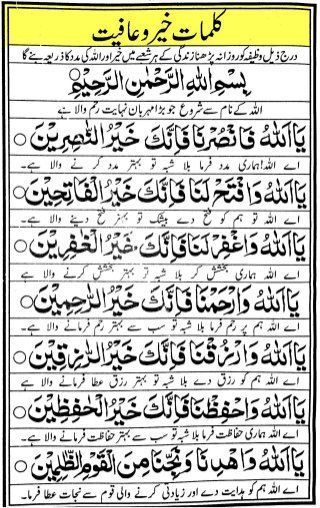 کلمات خیر و عافیت
درج ذیل وظیفہ کو روزانہ پڑھنا زندگی کے ہر شعبے میں خیر اور اللہ کی مدد کا ذریعہ بنے گا
بِسْمِ اللهِ الرَّحْمٰنِ الرَّحِيْمِ
اللہ کے نام سے شروع جو بڑا مہربان نہایت رحم والا ہے
يَا اَللهُ فَانْصُرْنَا فَاِنَّكَ خَيْرُ النّٰصِرِيْنَ
اے اللہ! ہماری مدد فرما بلا شبہ تو بہتر مدد کرنے والا ہے۔
يَا اَللهُ وَافْتَحْ لَنَا فَاِنَّكَ خَيْرُ الْفَاتِحِيْنَ
اے اللہ تو ہم کو فتح دے بیشک تو بہتر فتح دینے والا ہے۔
يَا اَللهُ وَاغْفِرْ لَنَا فَاِنَّكَ خَيْرُ الْغٰفِرِيْنَ
اے اللہ ہماری بخشش کر بلا شبہ تو بہتر بخشش کرنے والا ہے
يَا اَللهُ وَارْحَمْنَا فَاِنَّكَ خَيْرُ الرّٰحِمِيْنَ
اے اللہ ہم پر رحم فرما بلا شبہ تو سب سے بہتر رحم فرمانے والا ہے۔
يَا اَللهُ وَارْزُقْنَا فَاِنَّكَ خَيْرُ الرّٰزِقِيْنَ
اے اللہ ہم کو رزق دے بلا شبہ تو بہتر رزق عطا فرمانے والا ہے
يَا اَللهُ وَاحْفَظْنَا فَاِنَّكَ خَيْرُ الْحٰفِظِيْنَ
اے اللہ ہماری حفاظت فرما بلا شبہ تو سب سے بہتر حفاظت فرمانے والا ہے۔
يَا اَللهُ وَاهْدِنَا وَنَجِّنَا مِنَ الْقَوْمِ الظّٰلِمِيْنَ
اے اللہ ہم کو ہدایت دے اور زیادتی کرنے والی قوم سے نجات عطا فرما۔